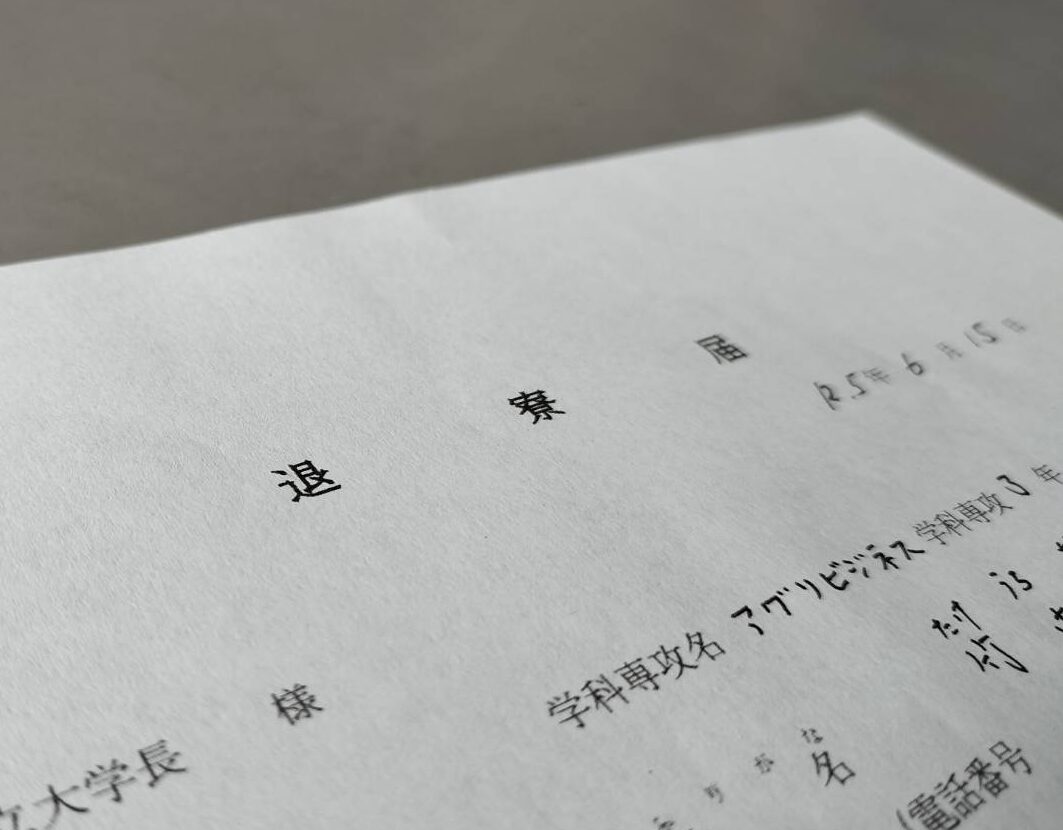 退寮届
R5年6月15日
学科専攻名 アグリビジネス学科専攻3年
たけ
竹
りがな
名
(電話番号
大学長 様